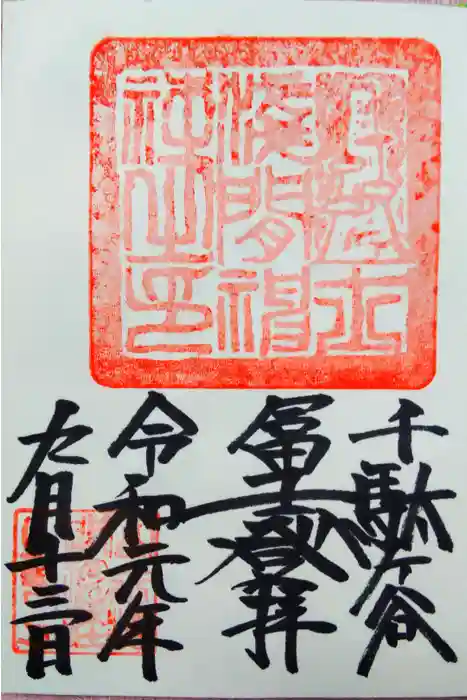 富士
浅間神
社之印
千駄ヶ谷
冨士登拝
令和元年
九月十三日